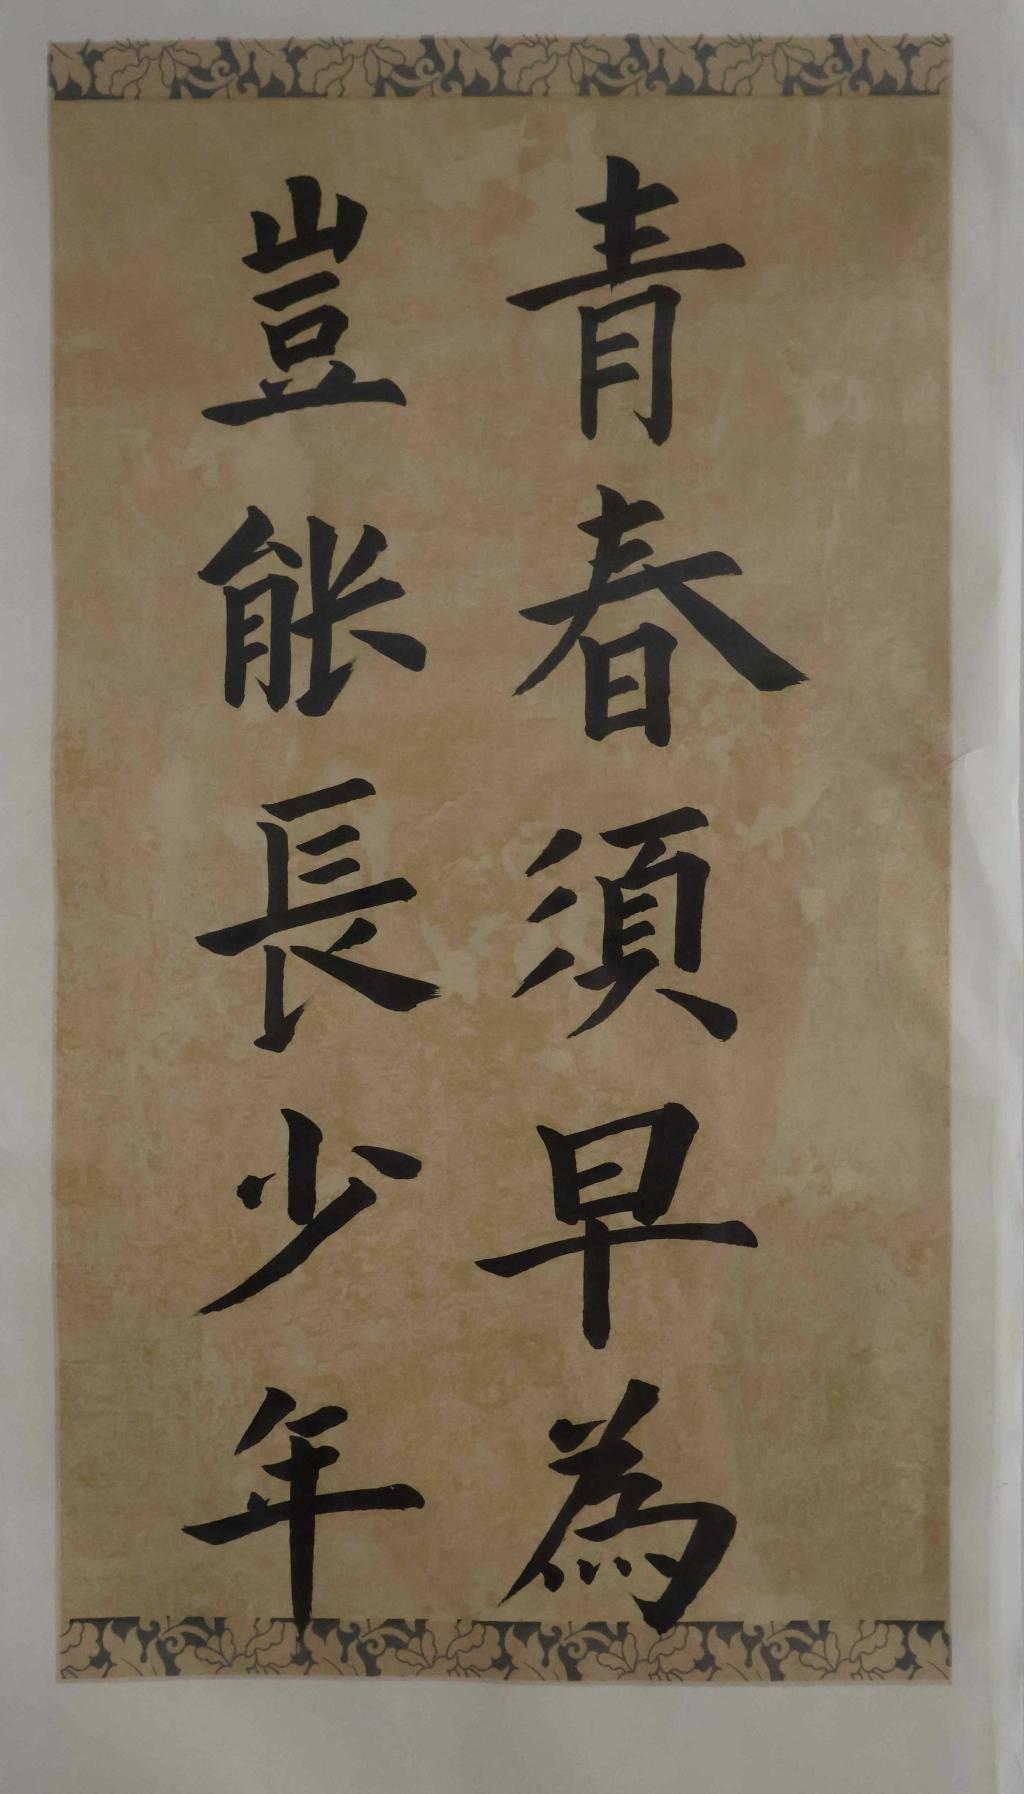 青春須早為
豈能長少年